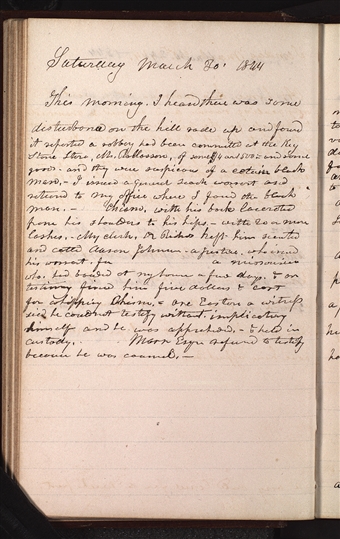 Saturday March 30. 1844
This morning. I heard there was some
disturbance on the hill rode up and found
it reported a robbery had been committed at the Key
Stone Store, Mr. Rollosson, of some and some
goods - and they were suspicious of a certain black
man, - I issued a General search warrant and
returned to my office where I found the black
man. - Chism, with his back lacerated
from his shoulders to his hips - with 20 or more
lashes. - My clerk, Dr Richards kept him secreted
and called Aaron Johnson - a Justice, who issued
his warrant. for a missourian
who. had boarded at my house a few days. & on
testimony fined him five dollars & cost
for whipping Chism, & one Easton a witness
said he could not testify without implicating
himself and he was apprehend. - & held in
custody. - Marr Esqr. refused to testify
because he was council. -